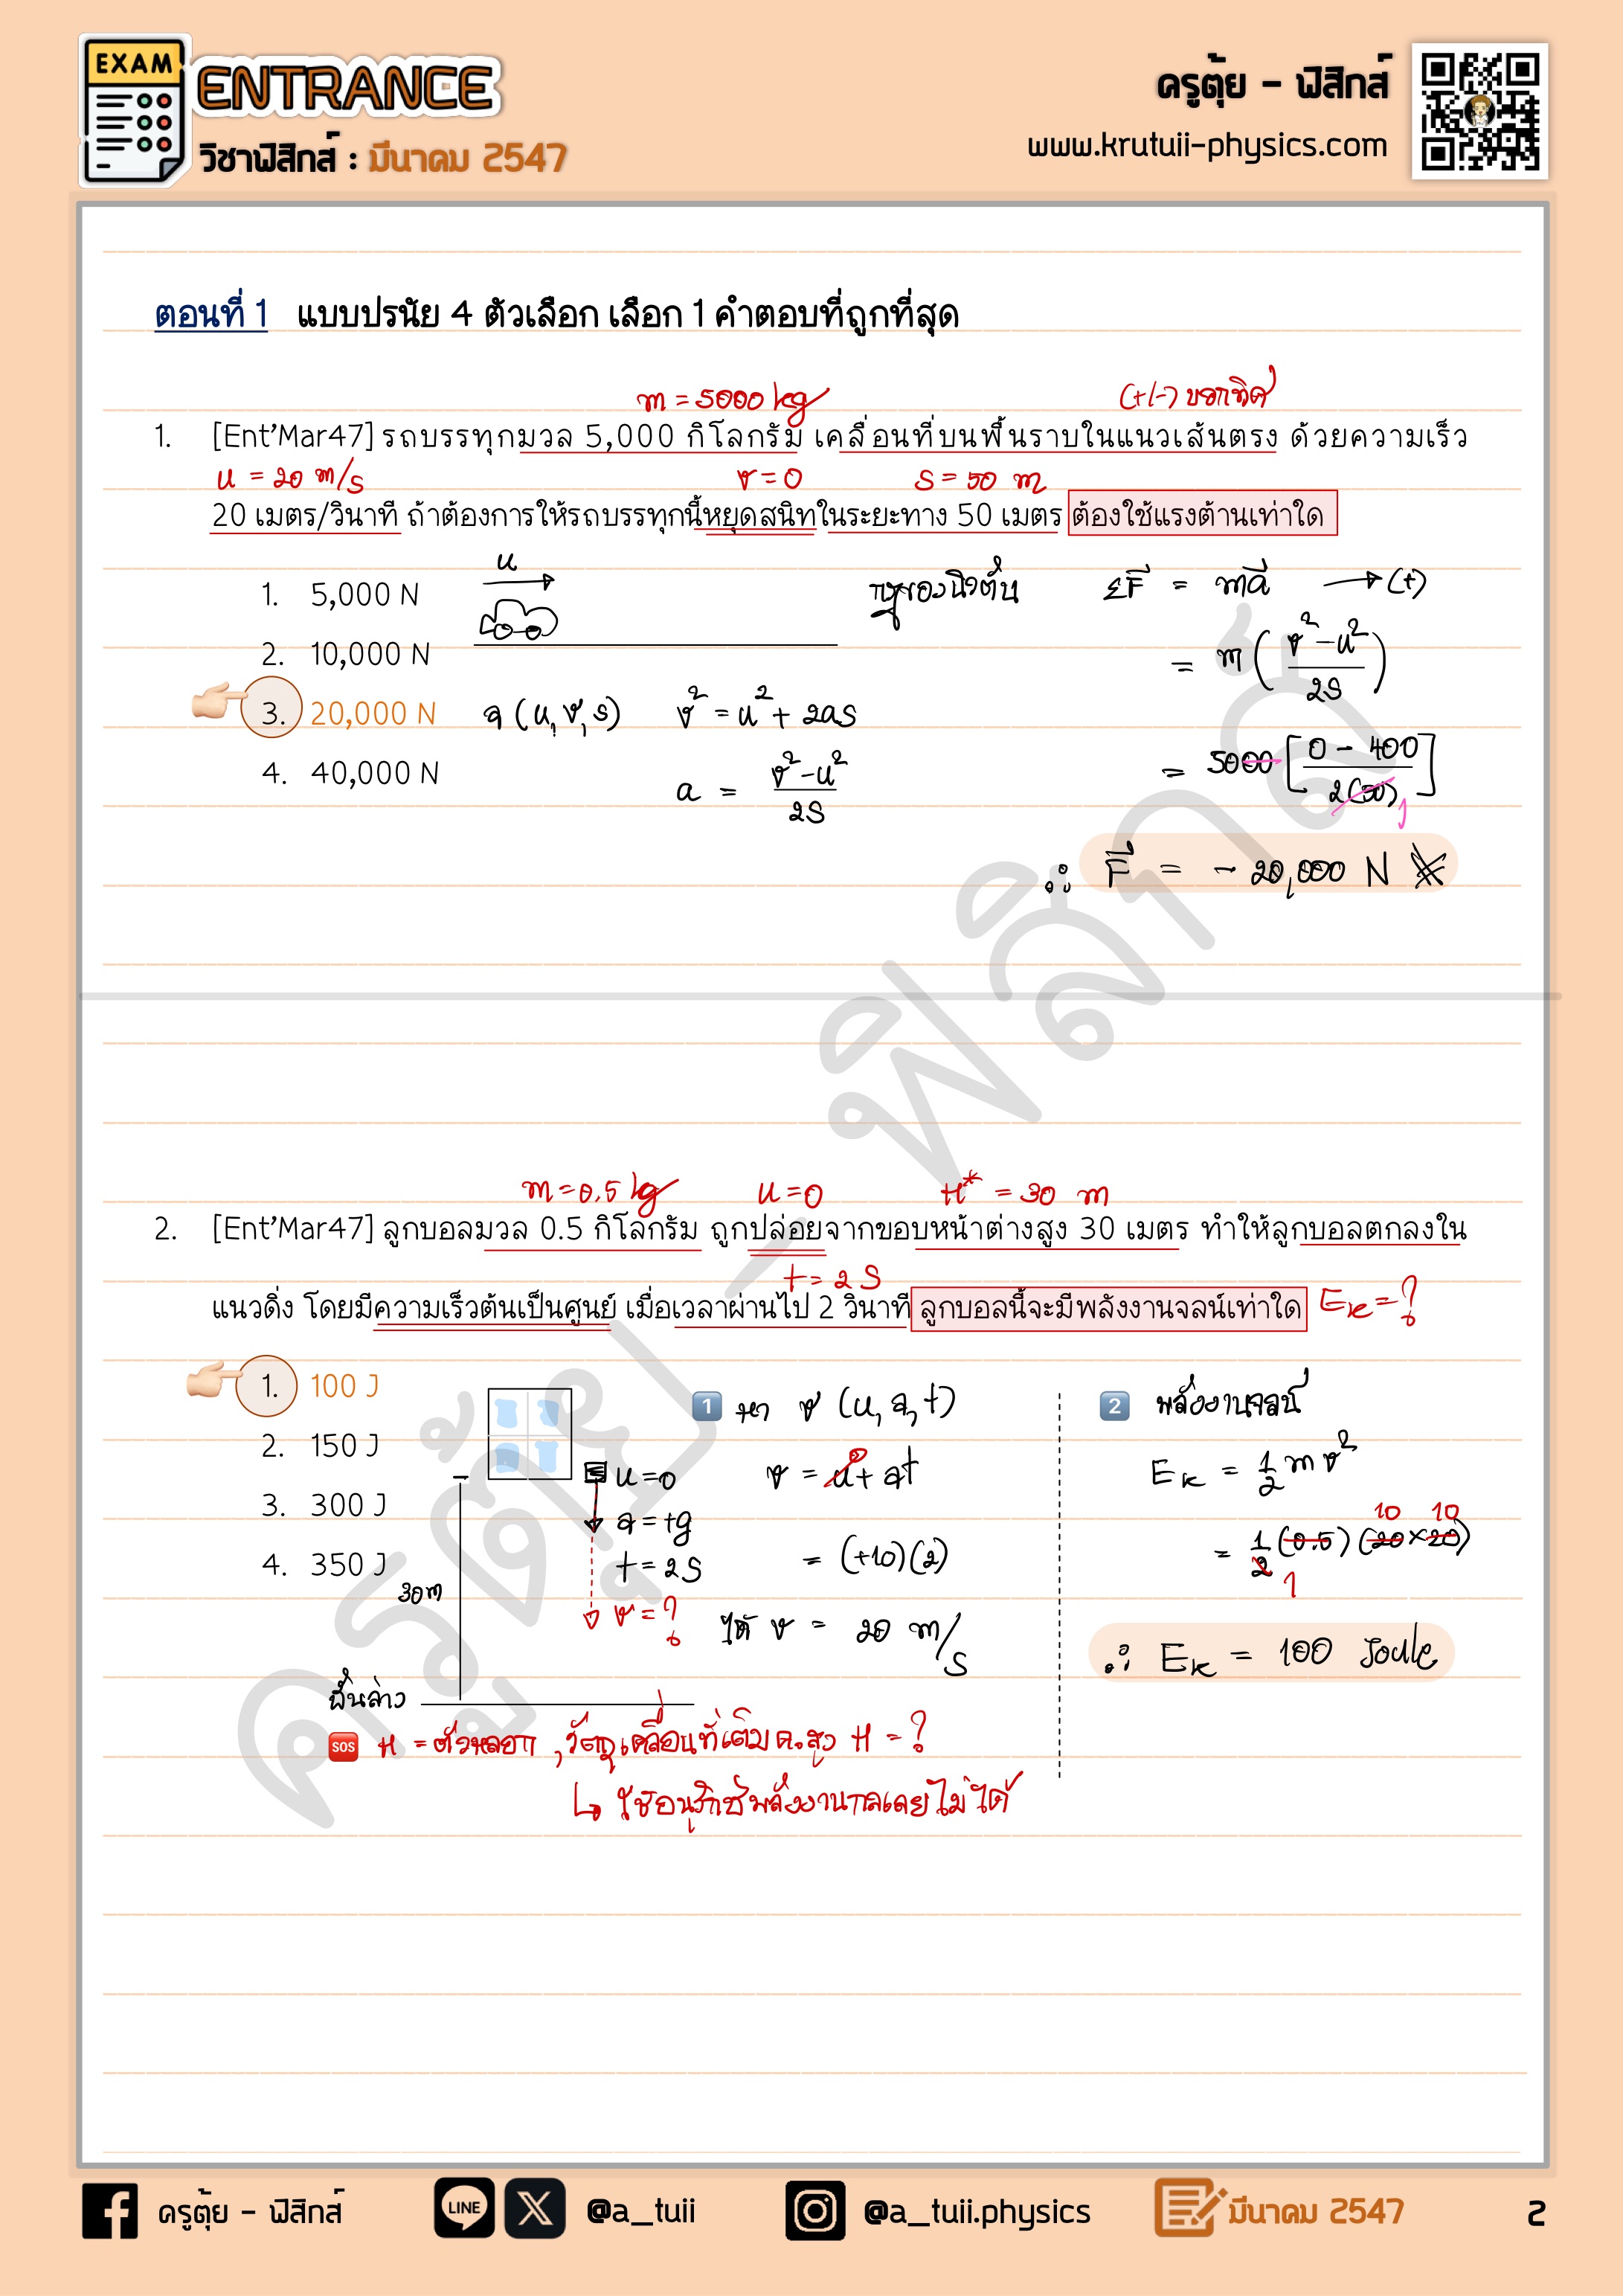 EXAM
ENTRANCE
วิชาฟิสิกส์ : มีนาคม 2547
ครูตุ้ย - ฟิสิกส์
www.krutuii-physics.com
ตอนที่ 1 แบบปรนัย 4 ตัวเลือก เลือก 1 คำตอบที่ถูกที่สุด
m = 5000 kg
(+/-) บอกทิศ
1. [Ent'Mar47] รถบรรทุกมวล 5,000 กิโลกรัม เคลื่อนที่บนพื้นราบในแนวเส้นตรง ด้วยความเร็ว
u = 20 m/s v = 0 s = 50 m
20 เมตร/วินาที ถ้าต้องการให้รถบรรทุกนี้หยุดสนิทในระยะทาง 50 เมตร ต้องใช้แรงต้านเท่าใด
1. 5,000 N
2. 10,000 N
3. 20,000 N
4. 40,000 N
u
a (u, v, s) v² = u² + 2as
a = v² - u² / 2s
กฎของนิวตัน ΣF = ma → (+)
= m ( v² - u² / 2s )
= 5000 [ 0 - 400 / 2(50) ] 1
∴ F = - 20,000 N
m = 0.5 kg u = 0 H* = 30 m
2. [Ent'Mar47] ลูกบอลมวล 0.5 กิโลกรัม ถูกปล่อยจากขอบหน้าต่างสูง 30 เมตร ทำให้ลูกบอลตกลงใน
t = 2 s
แนวดิ่ง โดยมีความเร็วต้นเป็นศูนย์ เมื่อเวลาผ่านไป 2 วินาที ลูกบอลนี้จะมีพลังงานจลน์เท่าใด Ek = ?
1. 100 J
2. 150 J
3. 300 J
4. 350 J
30 m
พื้นล่าง
u = 0
a = +g
t = 2 s
v = ?
1 หา v (u, a, t)
v = u + at
0
= (+10)(2)
ได้ v = 20 m/s
2 พลังงานจลน์
Ek = 1/2 m v²
10 10
= 1/2 (0.5) (20×20)
1
∴ Ek = 100 Joule
SOS H = ตัวหลอก , วัตถุเคลื่อนที่เต็ม ค.สูง H = ?
↳ ใช้อนุรักษ์พลังงานกลเลยไม่ได้
ครูตุ้ย - ฟิสิกส์
ครูตุ้ย - ฟิสิกส์
LINE
@a_tuii
@a_tuii.physics
มีนาคม 2547
2